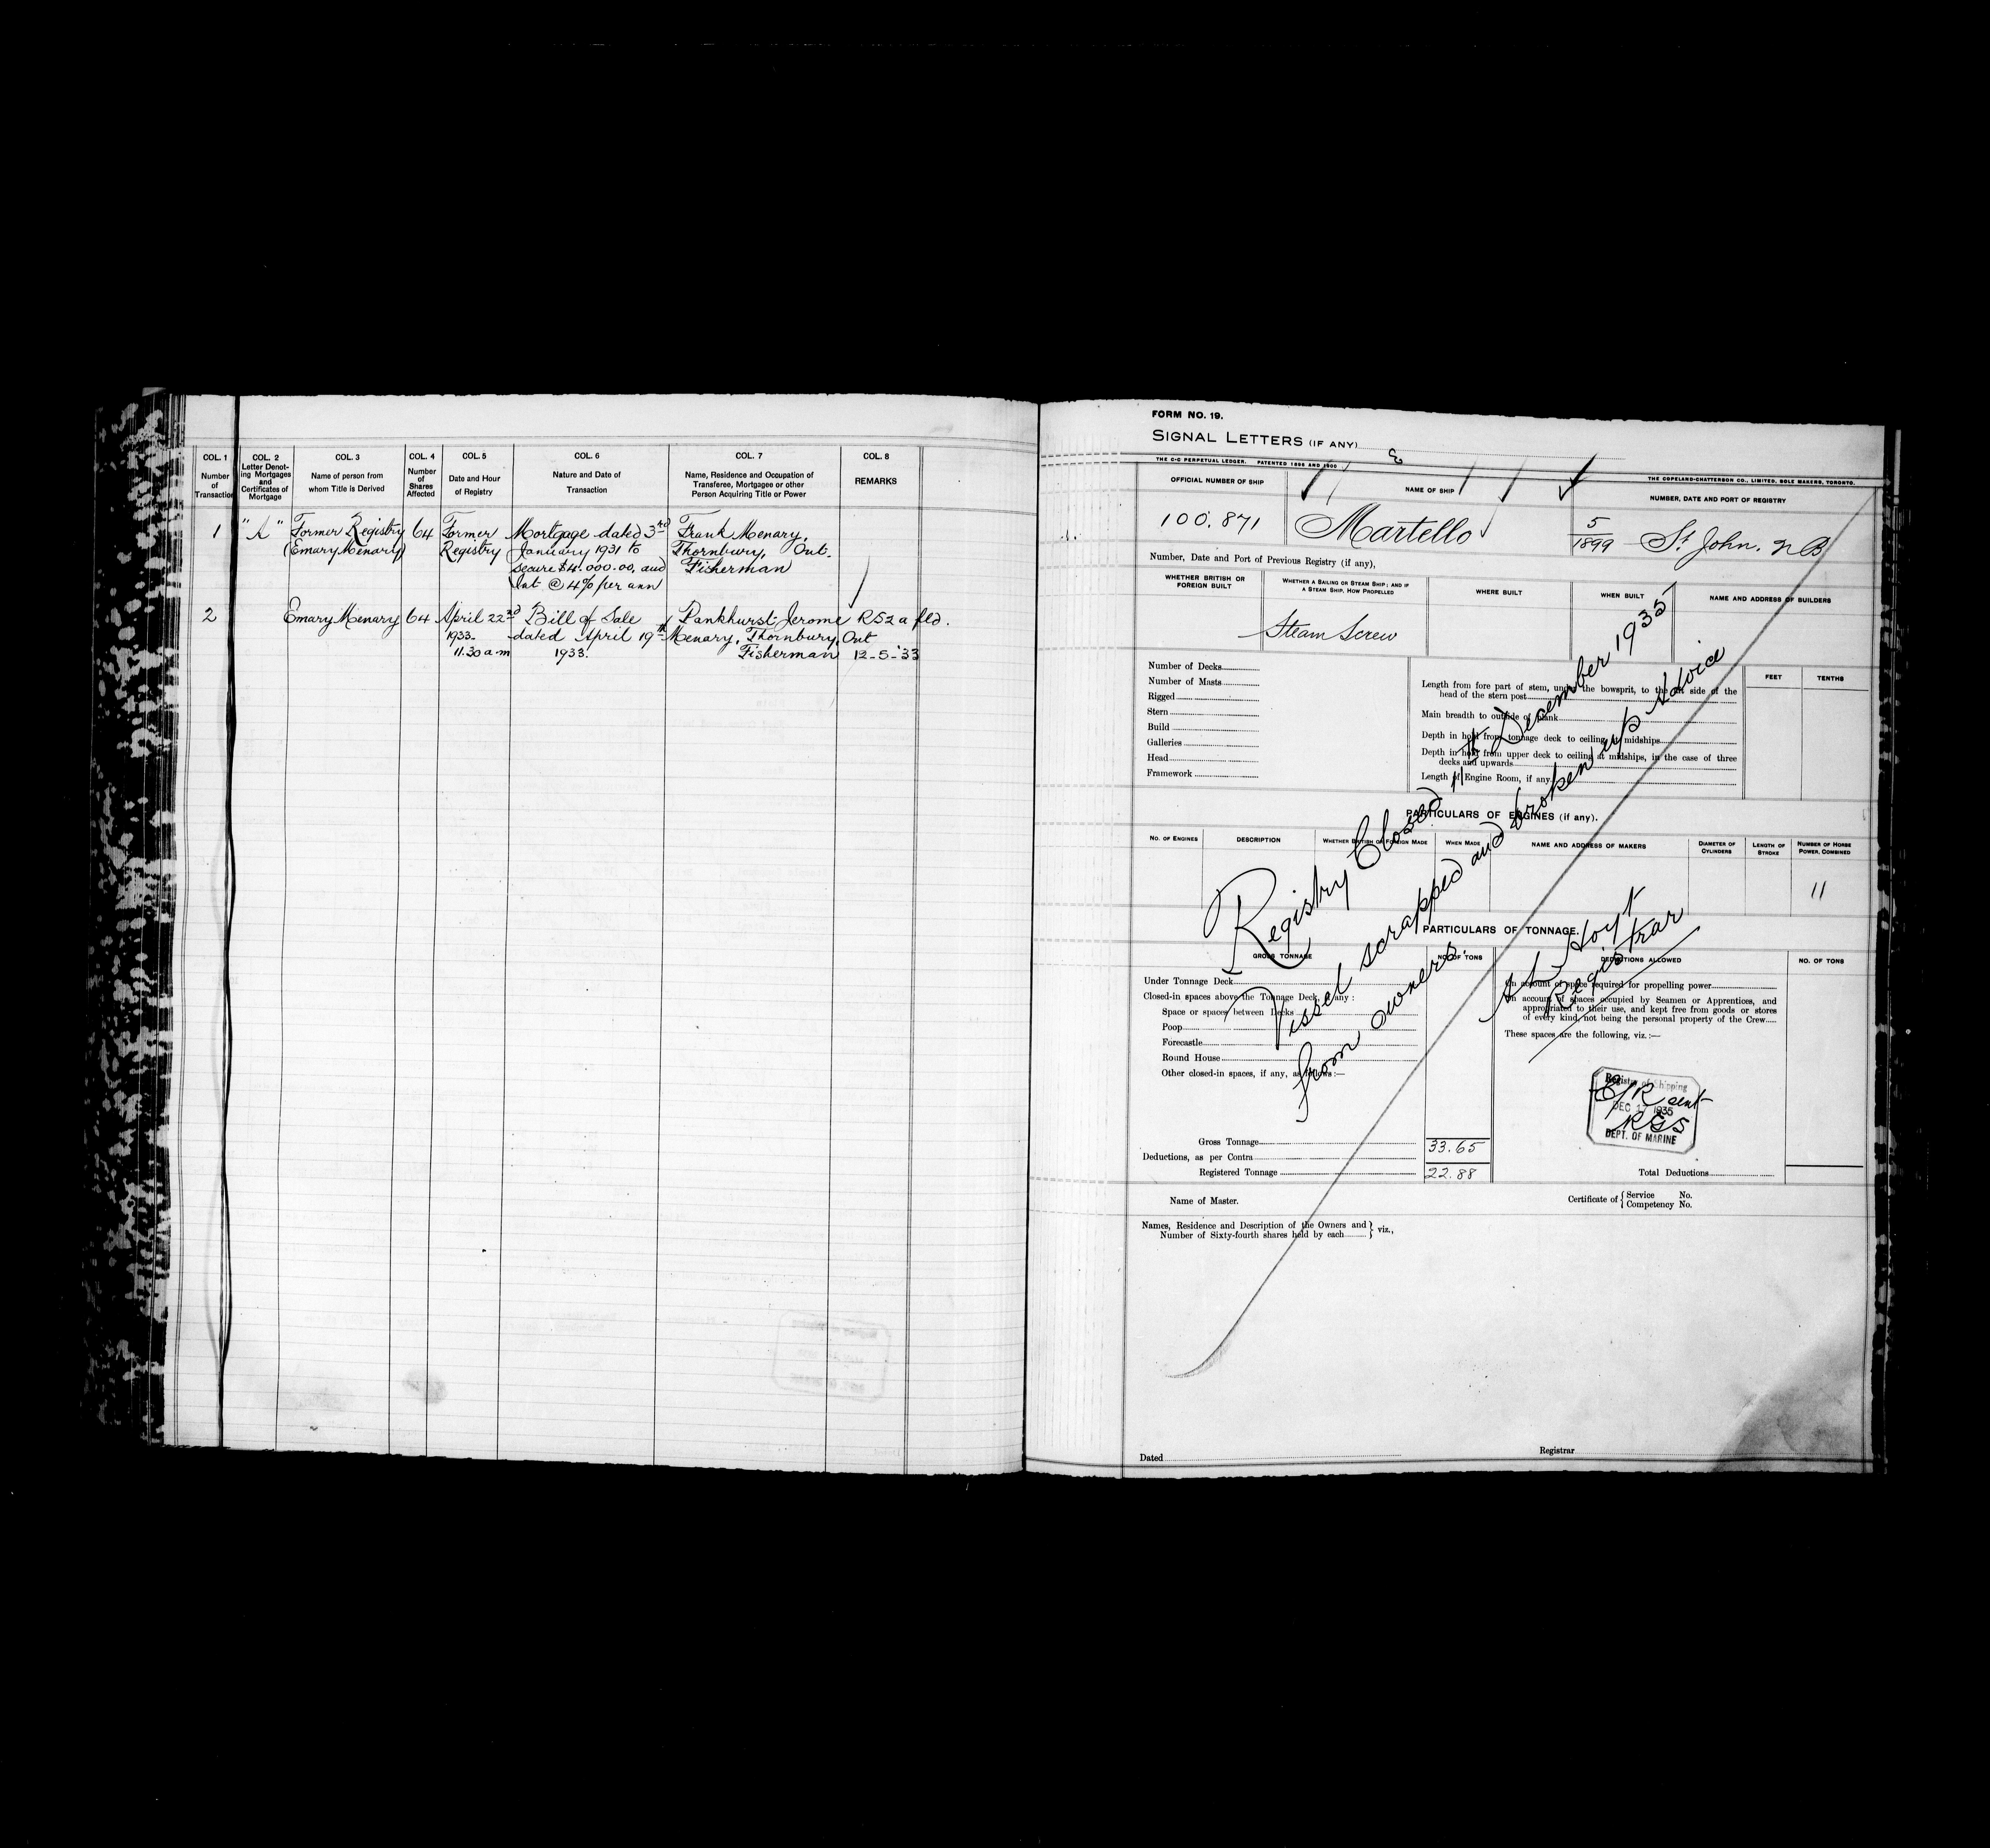 COL. 1 COL. 2 COL. 3 COL. 4 COL. 5 COL. 6 COL. 7 COL. 8
Number of Transaction
Letter Denoting Mortgages and Certificates of Mortgage
Name of person from whom Title is Derived
Number of Shares Affected
Date and Hour of Registry
Nature and Date of Transaction
Name, Residence and Occupation of Transferee, Mortgagee or other Person Acquiring Title or Power
REMARKS
1 "A" Former Registry 64 Former Mortgage dated 3rd Frank Menary,
(Emary Menary) Registry January 1931 to Thornbury, Ont.
secure $4.000.00. and Fisherman
Int @ 4% per ann
2 Emary Menary 64 April 22nd Bill of Sale Pankhurst Jerome R52a fld.
1933. dated April 19th Menary, Thornbury, Ont
11.30 a m 1933. Fisherman 12-5-'33
FORM NO. 19.
SIGNAL LETTERS (IF ANY)
THE C-C PERPETUAL LEDGER. PATENTED 1896 AND 1900
THE COPELAND-CHATTERSON CO., LIMITED, SOLE MAKERS, TORONTO.
OFFICIAL NUMBER OF SHIP NAME OF SHIP NUMBER, DATE AND PORT OF REGISTRY
100.871 Martello 5/1899 St John. N B
Number, Date and Port of Previous Registry (if any),
WHETHER BRITISH OR FOREIGN BUILT
WHETHER A SAILING OR STEAM SHIP; AND IF A STEAM SHIP, HOW PROPELLED
WHERE BUILT
WHEN BUILT
NAME AND ADDRESS OF BUILDERS
Steam Screw
Number of Decks
Number of Masts
Rigged
Stern
Build
Galleries
Head
Framework
FEET TENTHS
Length from fore part of stem, under the bowsprit, to the aft side of the
head of the stern post
Main breadth to outside of plank
Depth in hold from tonnage deck to ceiling at midships
Depth in hold from upper deck to ceiling at midships, in the case of three
decks and upwards
Length of Engine Room, if any
PARTICULARS OF ENGINES (if any).
NO. OF ENGINES DESCRIPTION WHETHER BRITISH OR FOREIGN MADE WHEN MADE NAME AND ADDRESS OF MAKERS DIAMETER OF CYLINDERS LENGTH OF STROKE NUMBER OF HORSE POWER, COMBINED
11
Registry Closed 11th December 1935
Vessel scrapped and broken up Advice
from owners.
Hoyt
Registrar
PARTICULARS OF TONNAGE.
GROSS TONNAGE NO. OF TONS DEDUCTIONS ALLOWED NO. OF TONS
Under Tonnage Deck
Closed-in spaces above the Tonnage Deck, if any :
Space or spaces between Decks
Poop
Forecastle
Round House
Other closed-in spaces, if any, as follows :—
On account of space required for propelling power
On account of spaces occupied by Seamen or Apprentices, and
appropriated to their use, and kept free from goods or stores
of every kind, not being the personal property of the Crew
These spaces are the following, viz. :—
Registry of Shipping
DEC 17 1935
DEPT. OF MARINE
sent
Gross Tonnage 33.65
Deductions, as per Contra
Registered Tonnage 22.88
Total Deductions
Name of Master.
Certificate of { Service No.
Competency No.
Names, Residence and Description of the Owners and } viz.,
Number of Sixty-fourth shares held by each
Dated
Registrar